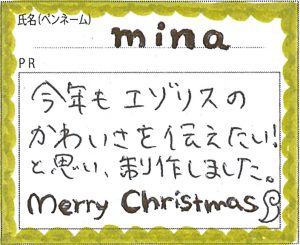 氏名(ペンネーム)
mina
PR
今年もエゾリスの
かわいさを伝えたい!
と思い、制作しました。
Merry Christmas